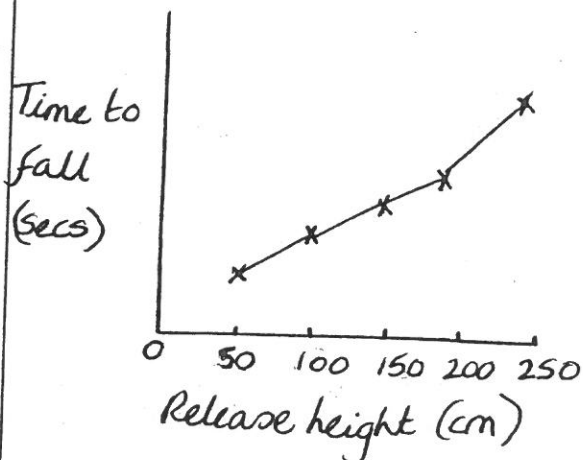 Time to
fall
(secs)
0 50 100 150 200 250
Release height (cm)